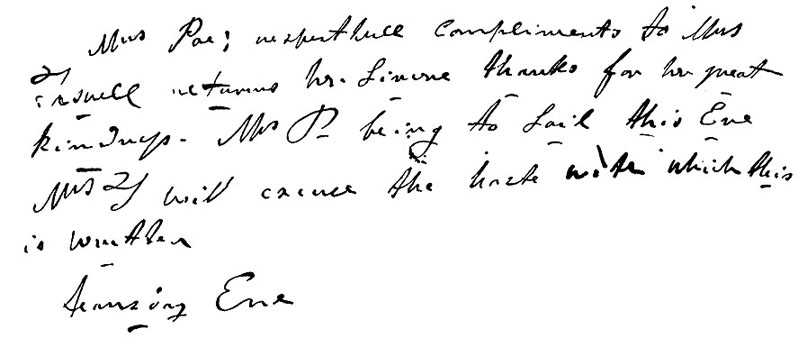 Mrs Poe's respectfull Compliments to Mrs
returns her Sincere thanks for her great
kindness. Mrs P being to Sail this Eve
Mrs will excuse the haste with which this
is written
Eve